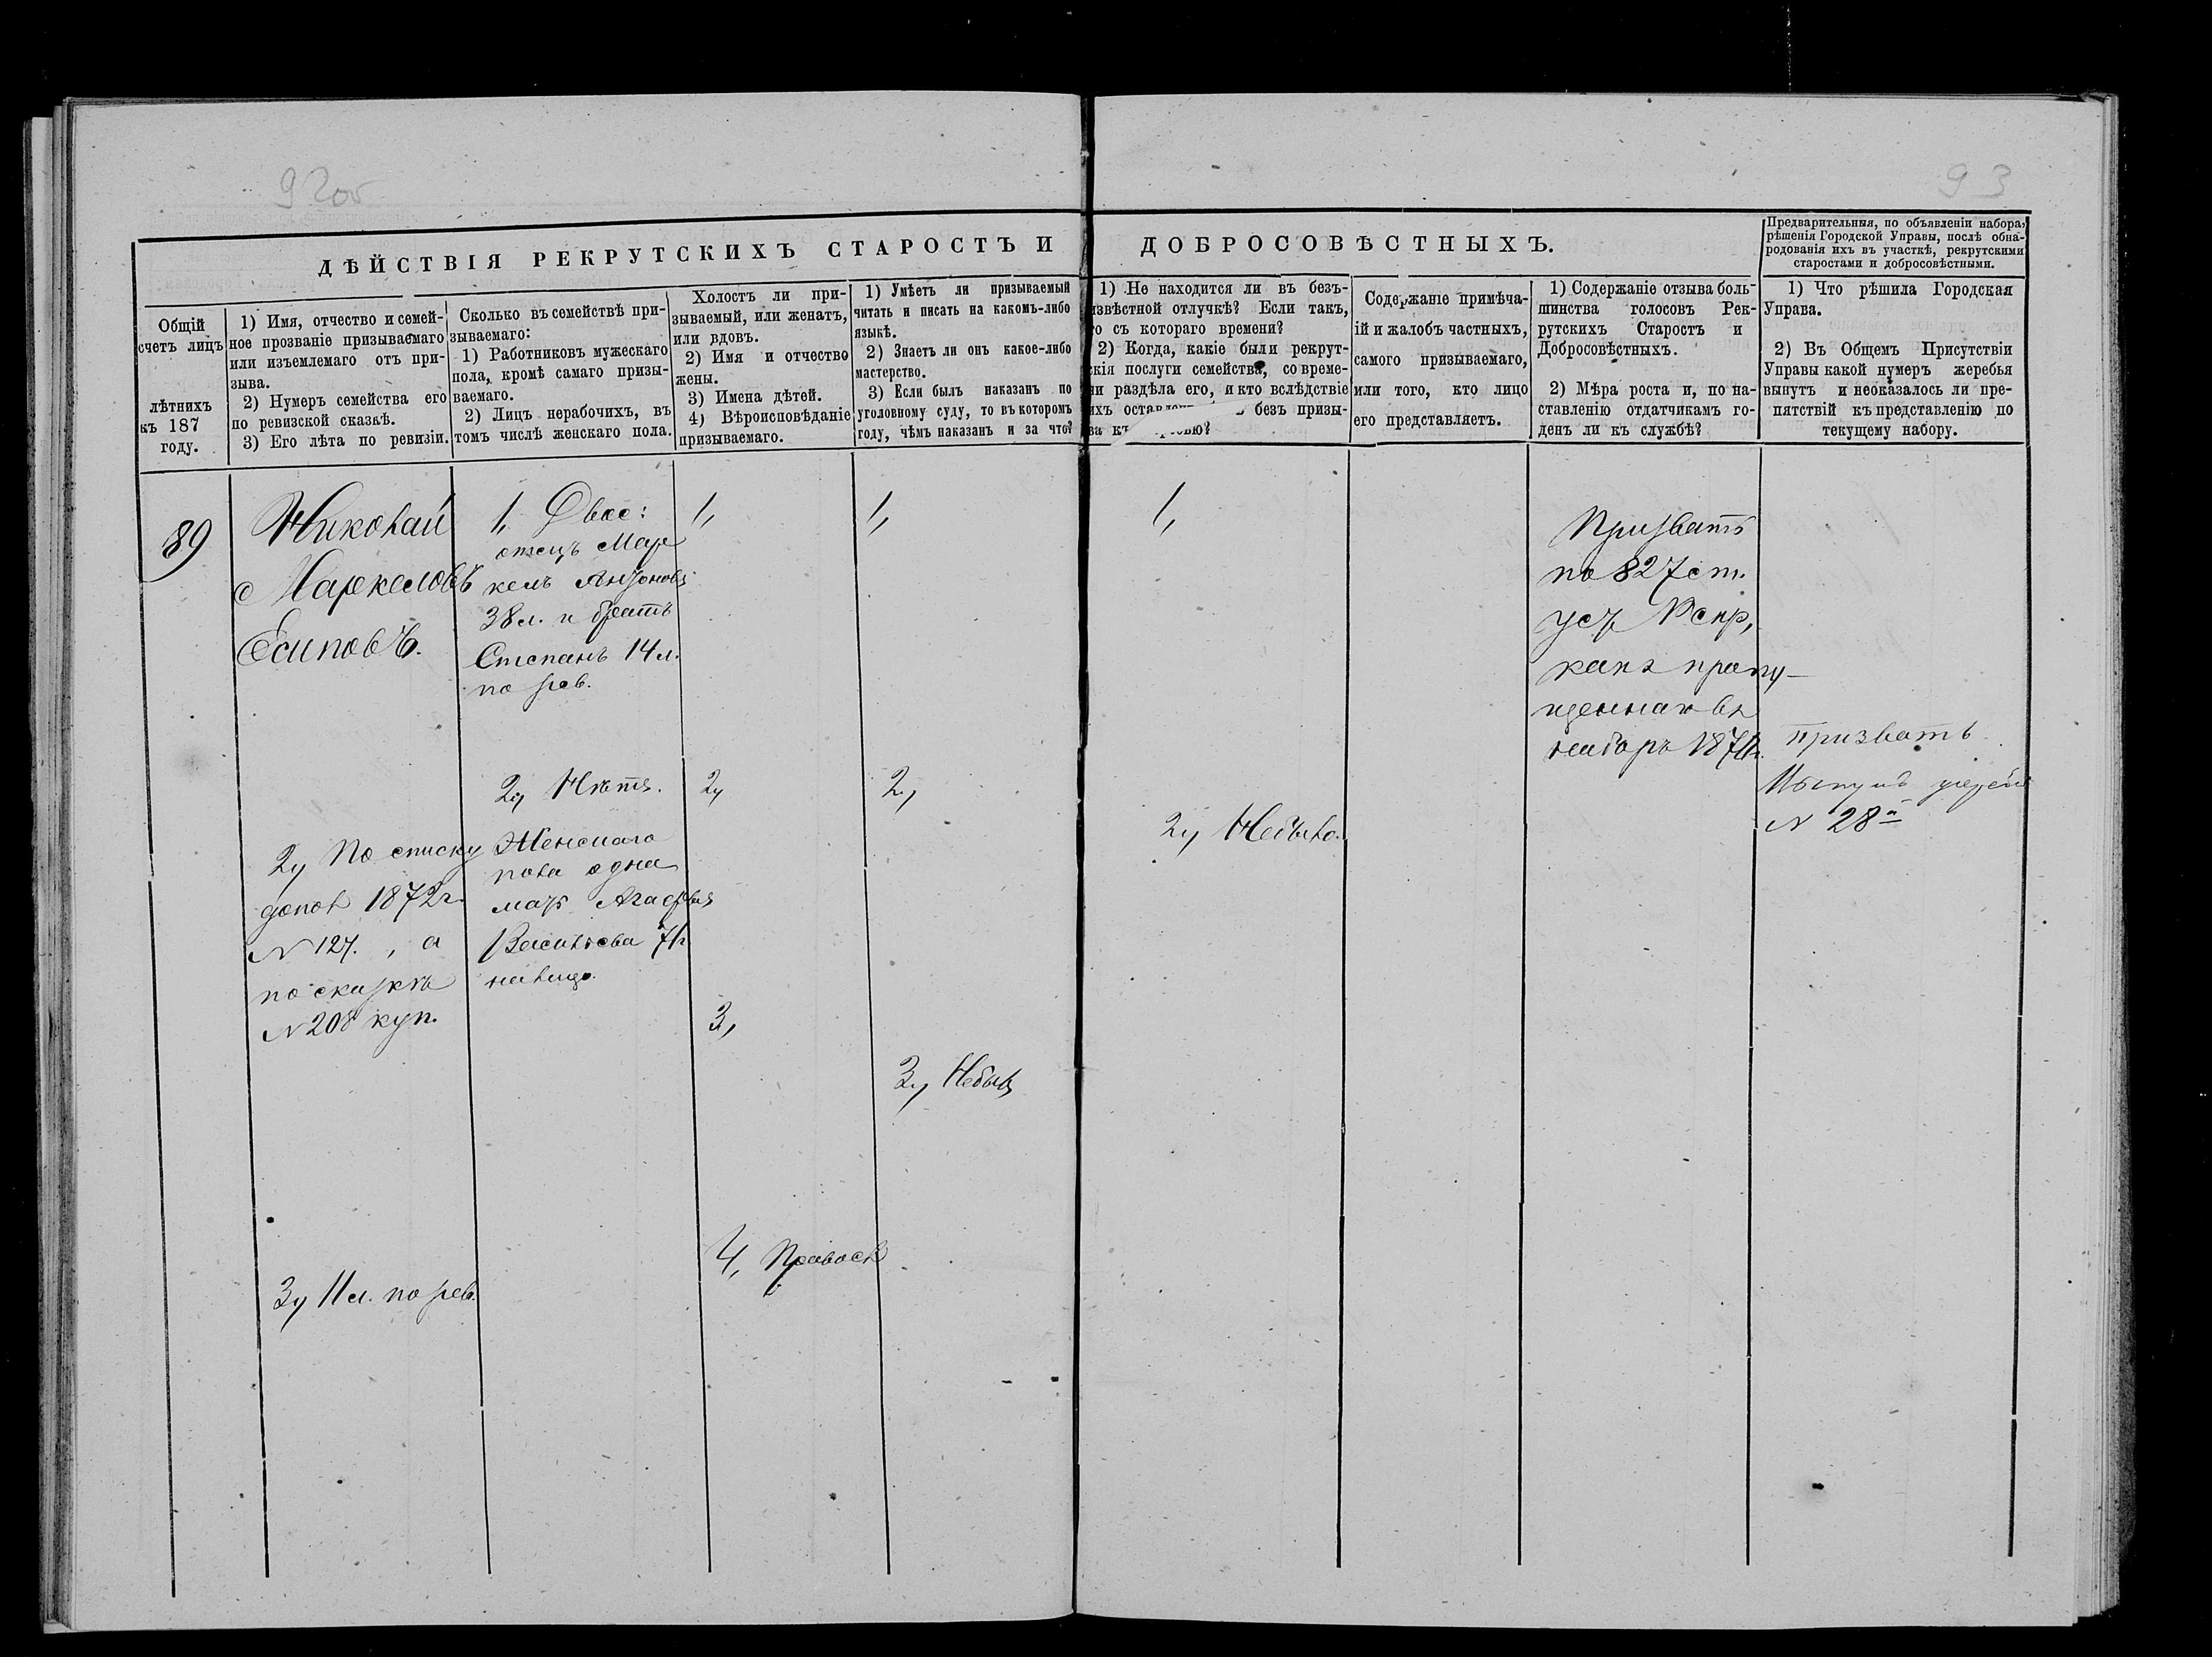 92об
93
ДѢЙСТВІЯ РЕКРУТСКИХЪ СТАРОСТЪ И ДОБРОСОВѢСТНЫХЪ.
Предварительныя, по объявленіи набора,
рѣшенія Городской Управы, послѣ обна-
родованія ихъ въ участкѣ, рекрутскими
старостами и добросовѣстными.
Общій
счетъ лицъ
лѣтнихъ
къ 187
году.
1) Имя, отчество и семей-
ное прозваніе призываемаго
или изъемлемаго отъ при-
зыва.
2) Нумеръ семейства его
по ревизской сказкѣ.
3) Его лѣта по ревизіи.
Сколько въ семействѣ при-
зываемаго:
1) Работниковъ мужескаго
пола, кромѣ самаго призы-
ваемаго.
2) Лицъ нерабочихъ, въ
томъ числѣ женскаго пола.
Холостъ ли при-
зываемый, или женатъ,
или вдовъ.
2) Имя и отчество
жены.
3) Имена дѣтей.
4) Вѣроисповѣданіе
призываемаго.
1) Умѣетъ ли призываемый
читать и писать на какомъ-либо
языкѣ.
2) Знаетъ ли онъ какое-либо
мастерство.
3) Если былъ наказанъ по
уголовному суду, то въ которомъ
году, чѣмъ наказанъ и за что?
1) Не находится ли въ безъ-
извѣстной отлучкѣ? Если такъ,
то съ котораго времени?
2) Когда, какіе были рекрут-
скія послуги семейства, со време-
ни раздѣла его, и кто вслѣдствіе
ихъ безъ призы-
ва къ
Содержаніе примѣча-
ій и жалобъ частныхъ,
самого призываемаго,
или того, кто лицо
его представляетъ.
1) Содержаніе отзыва боль-
шинства голосовъ Рек-
рутскихъ Старостъ и
Добросовѣстныхъ.
2) Мѣра роста и, по на-
ставленію отдатчикамъ го-
денъ ли къ службѣ?
1) Что рѣшила Городская
Управа.
2) Въ Общемъ Присутствіи
Управы какой нумеръ жеребья
вынутъ и неоказалось ли пре-
пятствій къ представленію по
текущему набору.
89
Николай
Маркеловъ
Есиповъ.
2, По списку
допол 1872 г.
N 127. , а
по сказкѣ
N 208 куп.
3, 11 л. по рев.
1, Двое:
отецъ Мар
келъ Антоновъ
38 л. и братъ
Степанъ 14 л.
по рев.
2, Нѣтъ.
Женскаго
пола одна
мать Агафья
Васильева
налицо.
1,
2,
3,
4, Правосл
1,
2,
3, Небылъ
1,
2, Небыло.
Призвать
по 827 ст.
уст Рекр,
какъ пропу-
щеннаго въ
наборъ
призвать
Вынулъ жребій
N 28й